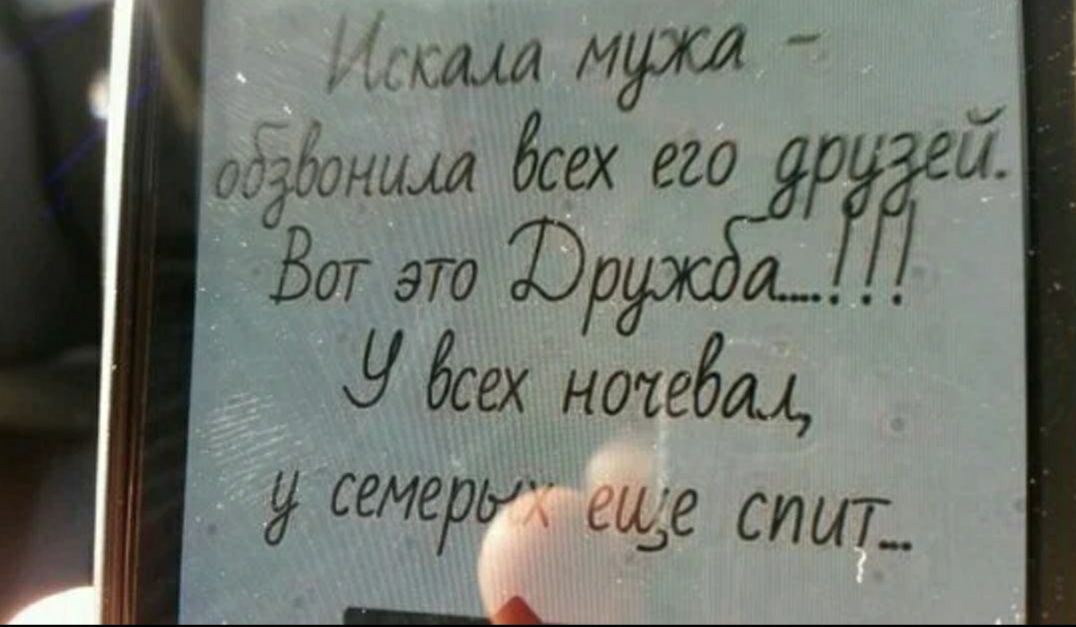 Искала мужа -
обзвонила всех его друзей.
Вот это Дружба....!!!
У всех ночевал,
у семерых еще спит...